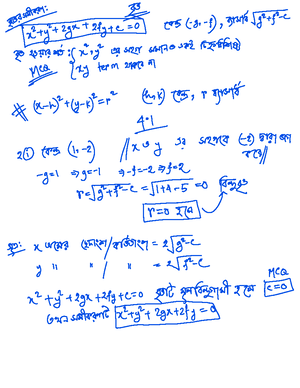 বৃত্তের সমীকরণ: বৃত্ত
x²+y²+2gx+2fy+c=0 কেন্দ্র (-g,-f), ব্যাসার্ধ √g²+f²-c
বৃত্ত হওয়ার শর্ত: x², y² এর সহগ সমান ও একই
MCQ xy থাকবে না
# (x-h)²+(y-k)²=r² (h,k) কেন্দ্র, r ব্যাসার্ধ
4.1
x ও y এর সহগকে (-2) দ্বারা ভাগ
2① কেন্দ্র (1,-2)
-g=1 ⇒ g=-1 ⇒ -f=-2 ⇒ f=2
r=√g²+f²-c = √1+4-5 = 0 বিন্দুবৃত্ত
r=0 হলে
সূত্র: x অক্ষের ছেদাংশ/কর্তিতাংশ = 2√g²-c
y " " / " = 2√f²-c
MCQ
x²+y²+2gx+2fy+c=0 বৃত্তটি মূলবিন্দুগামী হলে c=0
তখন সমীকরণটি x²+y²+2gx+2fy=0